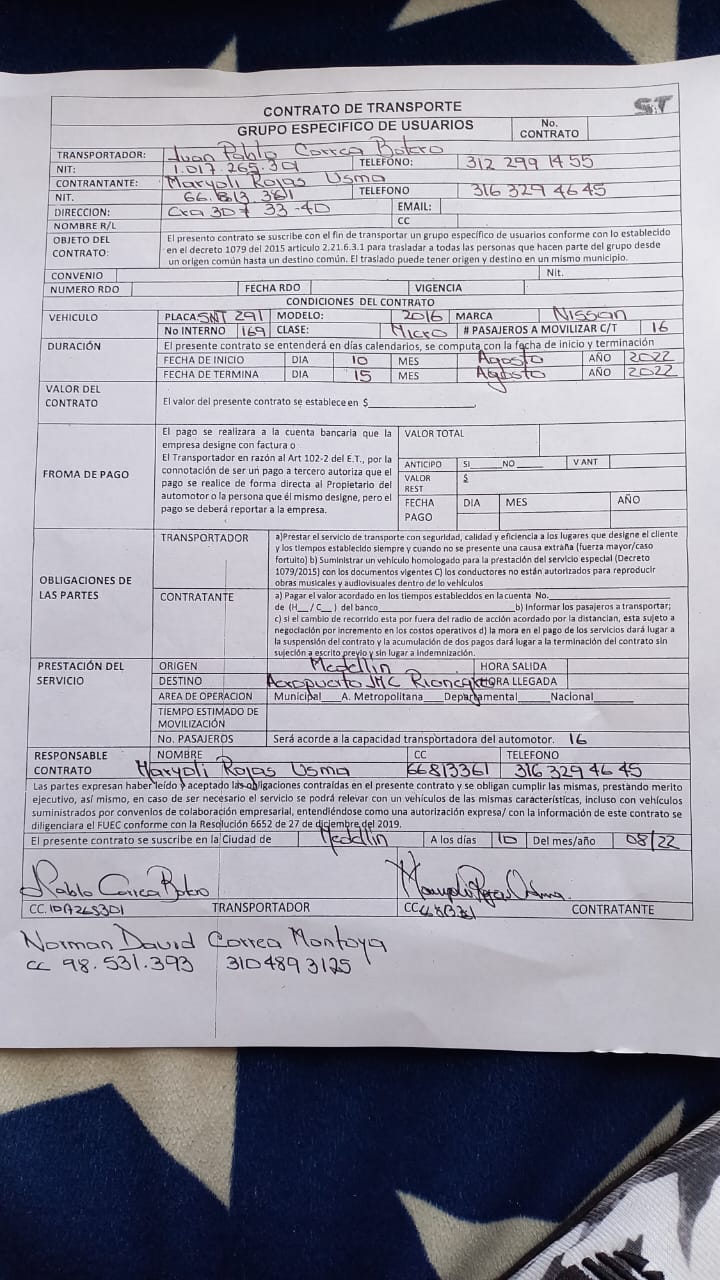 CONTRATO DE TRANSPORTE
ST
GRUPO ESPECIFICO DE USUARIOS No. CONTRATO
TRANSPORTADOR: Juan Pablo Correa Botero
NIT: 1.017.265.301 TELEFONO: 312 299 14 55
CONTRANTANTE: Maryoli Rojas Usma
NIT. 66.813.361 TELEFONO 316 329 46 45
DIRECCION: Cra 30 # 33-40 EMAIL:
NOMBRE R/L CC
OBJETO DEL CONTRATO: El presente contrato se suscribe con el fin de transportar un grupo específico de usuarios conforme con lo establecido
en el decreto 1079 del 2015 articulo 2.21.6.3.1 para trasladar a todas las personas que hacen parte del grupo desde
un origen común hasta un destino común. El traslado puede tener origen y destino en un mismo municipio.
CONVENIO Nit.
NUMERO RDO FECHA RDO VIGENCIA
CONDICIONES DEL CONTRATO
VEHICULO PLACA SNT 291 MODELO: 2016 MARCA Nissan
No INTERNO 169 CLASE: Micro # PASAJEROS A MOVILIZAR C/T 16
DURACIÓN El presente contrato se entenderá en días calendarios, se computa con la fecha de inicio y terminación
FECHA DE INICIO DIA 10 MES Agosto AÑO 2022
FECHA DE TERMINA DIA 15 MES Agosto AÑO 2022
VALOR DEL CONTRATO El valor del presente contrato se establece en $
FROMA DE PAGO
El pago se realizara a la cuenta bancaria que la
empresa designe con factura o
El Transportador en razón al Art 102-2 del E.T., por la
connotación de ser un pago a tercero autoriza que el
pago se realice de forma directa al Propietario del
automotor o la persona que él mismo designe, pero el
pago se deberá reportar a la empresa.
VALOR TOTAL
ANTICIPO SI____NO____ V ANT
VALOR REST $
FECHA PAGO DIA MES AÑO
OBLIGACIONES DE LAS PARTES
TRANSPORTADOR a)Prestar el servicio de transporte con seguridad, calidad y eficiencia a los lugares que designe el cliente
y los tiempos establecido siempre y cuando no se presente una causa extraña (fuerza mayor/caso
fortuito) b) Suministrar un vehículo homologado para la prestación del servicio especial (Decreto
1079/2015) con los documentos vigentes C) los conductores no están autorizados para reproducir
obras musicales y audiovisuales dentro de lo vehículos
CONTRATANTE a) Pagar el valor acordado en los tiempos establecidos en la cuenta No.
de (H__/ C__) del banco____b) Informar los pasajeros a transportar;
c) si el cambio de recorrido esta por fuera del radio de acción acordado por la distancian, esta sujeto a
negociación por incremento en los costos operativos d) la mora en el pago de los servicios dará lugar a
la suspensión del contrato y la acumulación de dos pagos dará lugar a la terminación del contrato sin
sujeción a escrito previo y sin lugar a indemnización.
PRESTACIÓN DEL SERVICIO
ORIGEN Medellin HORA SALIDA
DESTINO Aeropuerto JMC Rionegro HORA LLEGADA
AREA DE OPERACION Municipal___A. Metropolitana___Departamental____Nacional____
TIEMPO ESTIMADO DE MOVILIZACIÓN
No. PASAJEROS Será acorde a la capacidad transportadora del automotor. 16
RESPONSABLE CONTRATO NOMBRE CC TELEFONO
Maryoli Rojas Usma 66813361 316 329 46 45
Las partes expresan haber leído y aceptado las obligaciones contraídas en el presente contrato y se obligan cumplir las mismas, prestando merito
ejecutivo, así mismo, en caso de ser necesario el servicio se podrá relevar con un vehículos de las mismas características, incluso con vehículos
suministrados por convenios de colaboración empresarial, entendiéndose como una autorización expresa/ con la información de este contrato se
diligenciara el FUEC conforme con la Resolución 6652 de 27 de diciembre del 2019.
El presente contrato se suscribe en la Ciudad de Medellin A los días 10 Del mes/año 08/22
Pablo Correa Botero
CC. 1017265301 TRANSPORTADOR CC CONTRATANTE
Norman David Correa Montoya
CC 98.531.393 310 489 3125